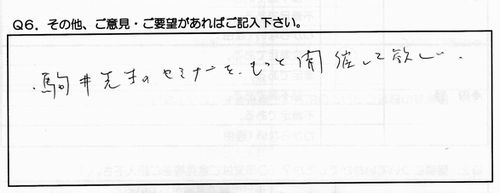 Q6. その他、ご意見・ご要望があればご記入下さい。
・駒井先生のセミナーを、もっと開催して欲しい.